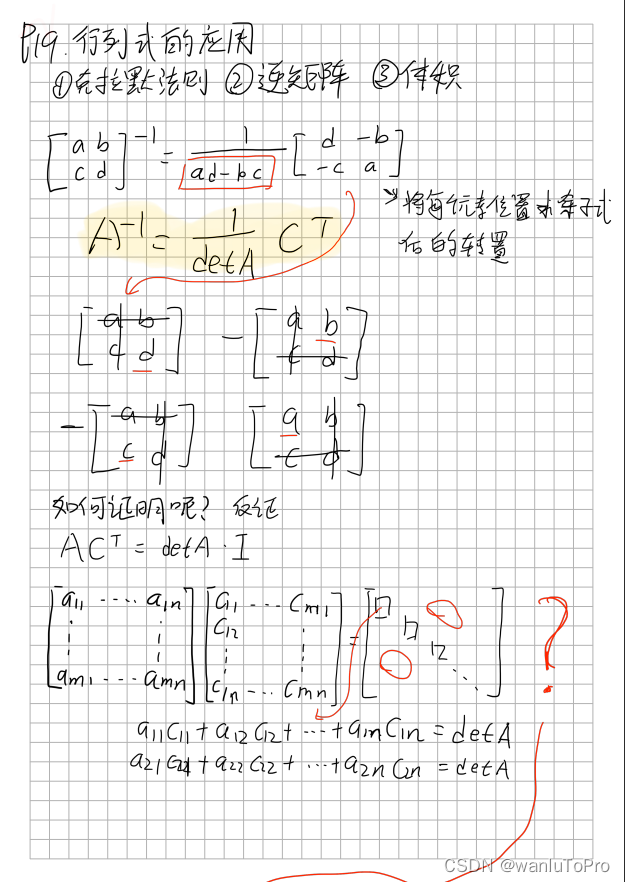 P19.行列式的应用
①克拉默法则 ②逆矩阵 ③体积
[a b c d]^-1 = 1/(ad-bc) [d -b -c a]
将每个元素位置求余子式
后的转置
A^-1 = 1/detA C^T
[a b c d] -[a b c d]
-[a b c d] [a b c d]
如何证明呢? 反证
AC^T = detA · I
[a11 ···· a1n am1 ···· amn] [C11 ··· Cm1 C12 C1n ··· Cmn] = [ ] ?
a11C11 + a12C12 + ··· + a1nC1n = detA
a21C21 + a22C22 + ··· + a2nC2n = detA
CSDN @wanluToPro